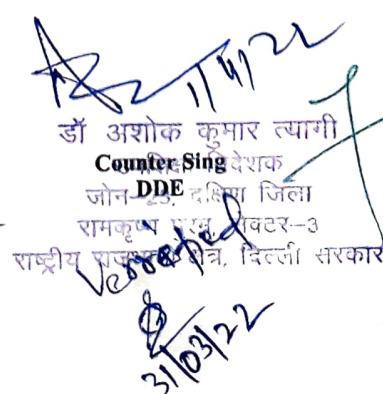 1/4/22
डॉ अशोक कुमार त्यागी
Counter Sing देशक
DDE
जोन-23, दक्षिण जिला
रामकृष्ण सेक्टर-3
राष्ट्रीय क्षेत्र, दिल्ली सरकार
Verified
31/03/22